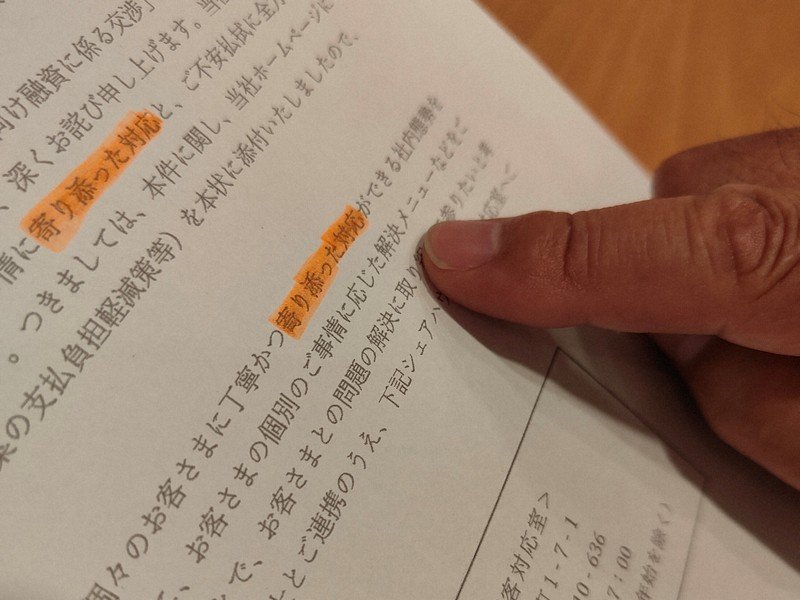 向け融資に係る交渉
、深くお詫び申し上げます。当
情に寄り添った対応と、ご不安払拭に全力
。つきましては、本件に関し、当社ホームページに
来の支払負担軽減策等）を本状に添付いたしましたので、
個々のお客さまに丁寧かつ寄り添った対応ができる社内態勢を
、お客さまの個別のご事情に応じた解決メニューなどをご
で、お客さまとの問題の解決に取り 参りたいと考
とご連携のうえ、下記シェアハ 応室へご
客対応室＞
1-7-1
10-636
7:00
年始を除く）